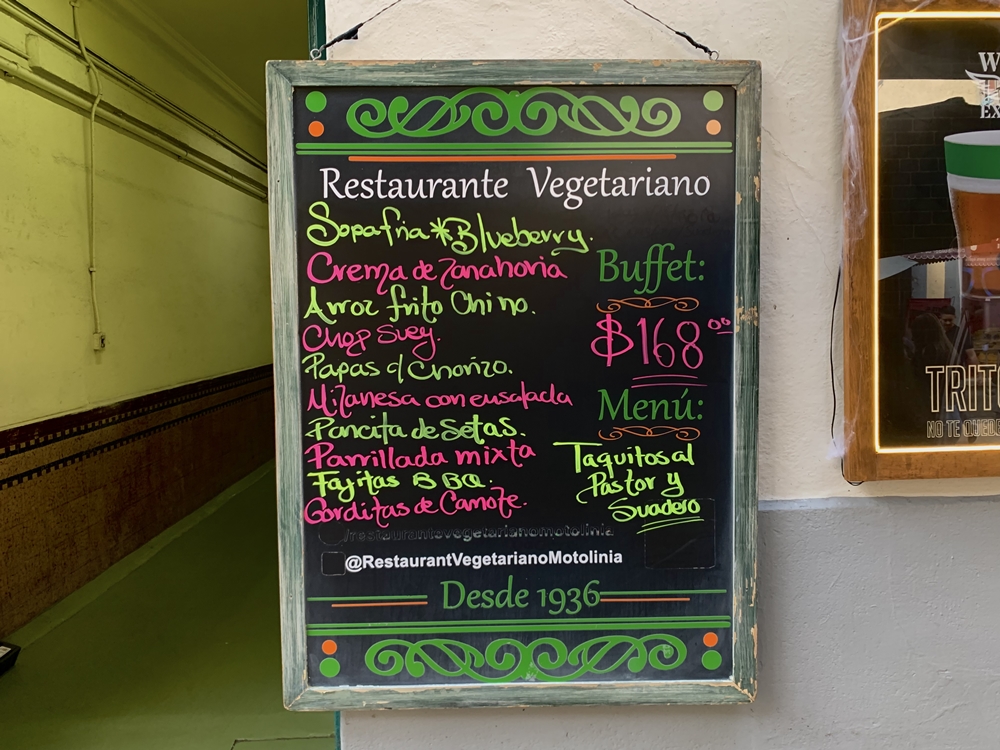 Restaurante Vegetariano
Sopa fria * Blueberry.
Crema de Zanahoria
Arroz frito Chino.
Chop Suey.
Papas c/ Chorizo.
Milanesa con ensalada
Pancita de Setas.
Parrillada mixta
Fajitas BBQ.
Gorditas de Camote.
Buffet:
$168.00
Menú:
Taquitos al
Pastor y
Suadero
/restaurantevegetarianomotolinia
@RestaurantVegetarianoMotolinia
Desde 1936
W
EX
TRIT
NO TE QUEDE